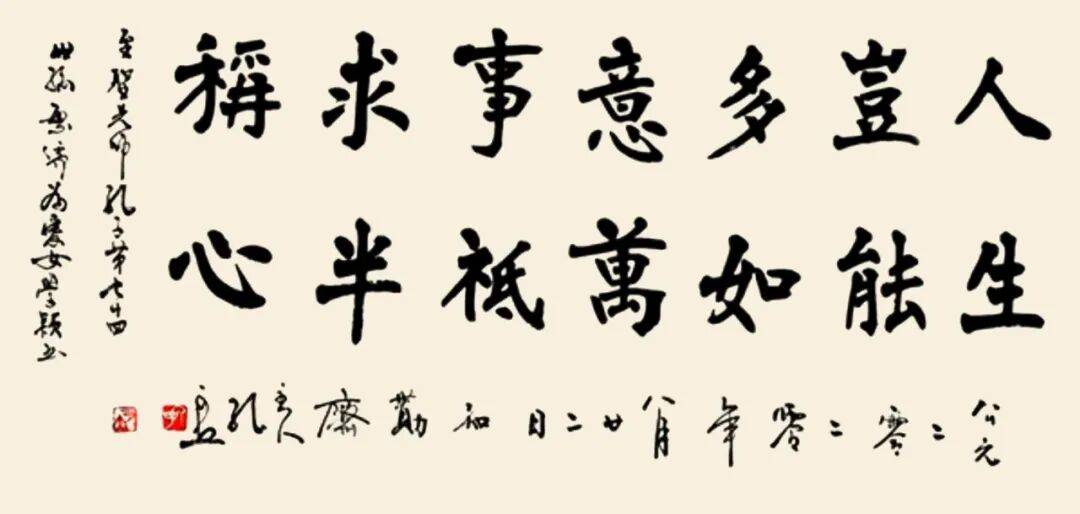 人生
豈能
多如
意萬
事祗
求半
稱心
公元二零二零年八月廿二日齋主人孔
至聖先師孔子第七十四
世孫為愛女學穎書